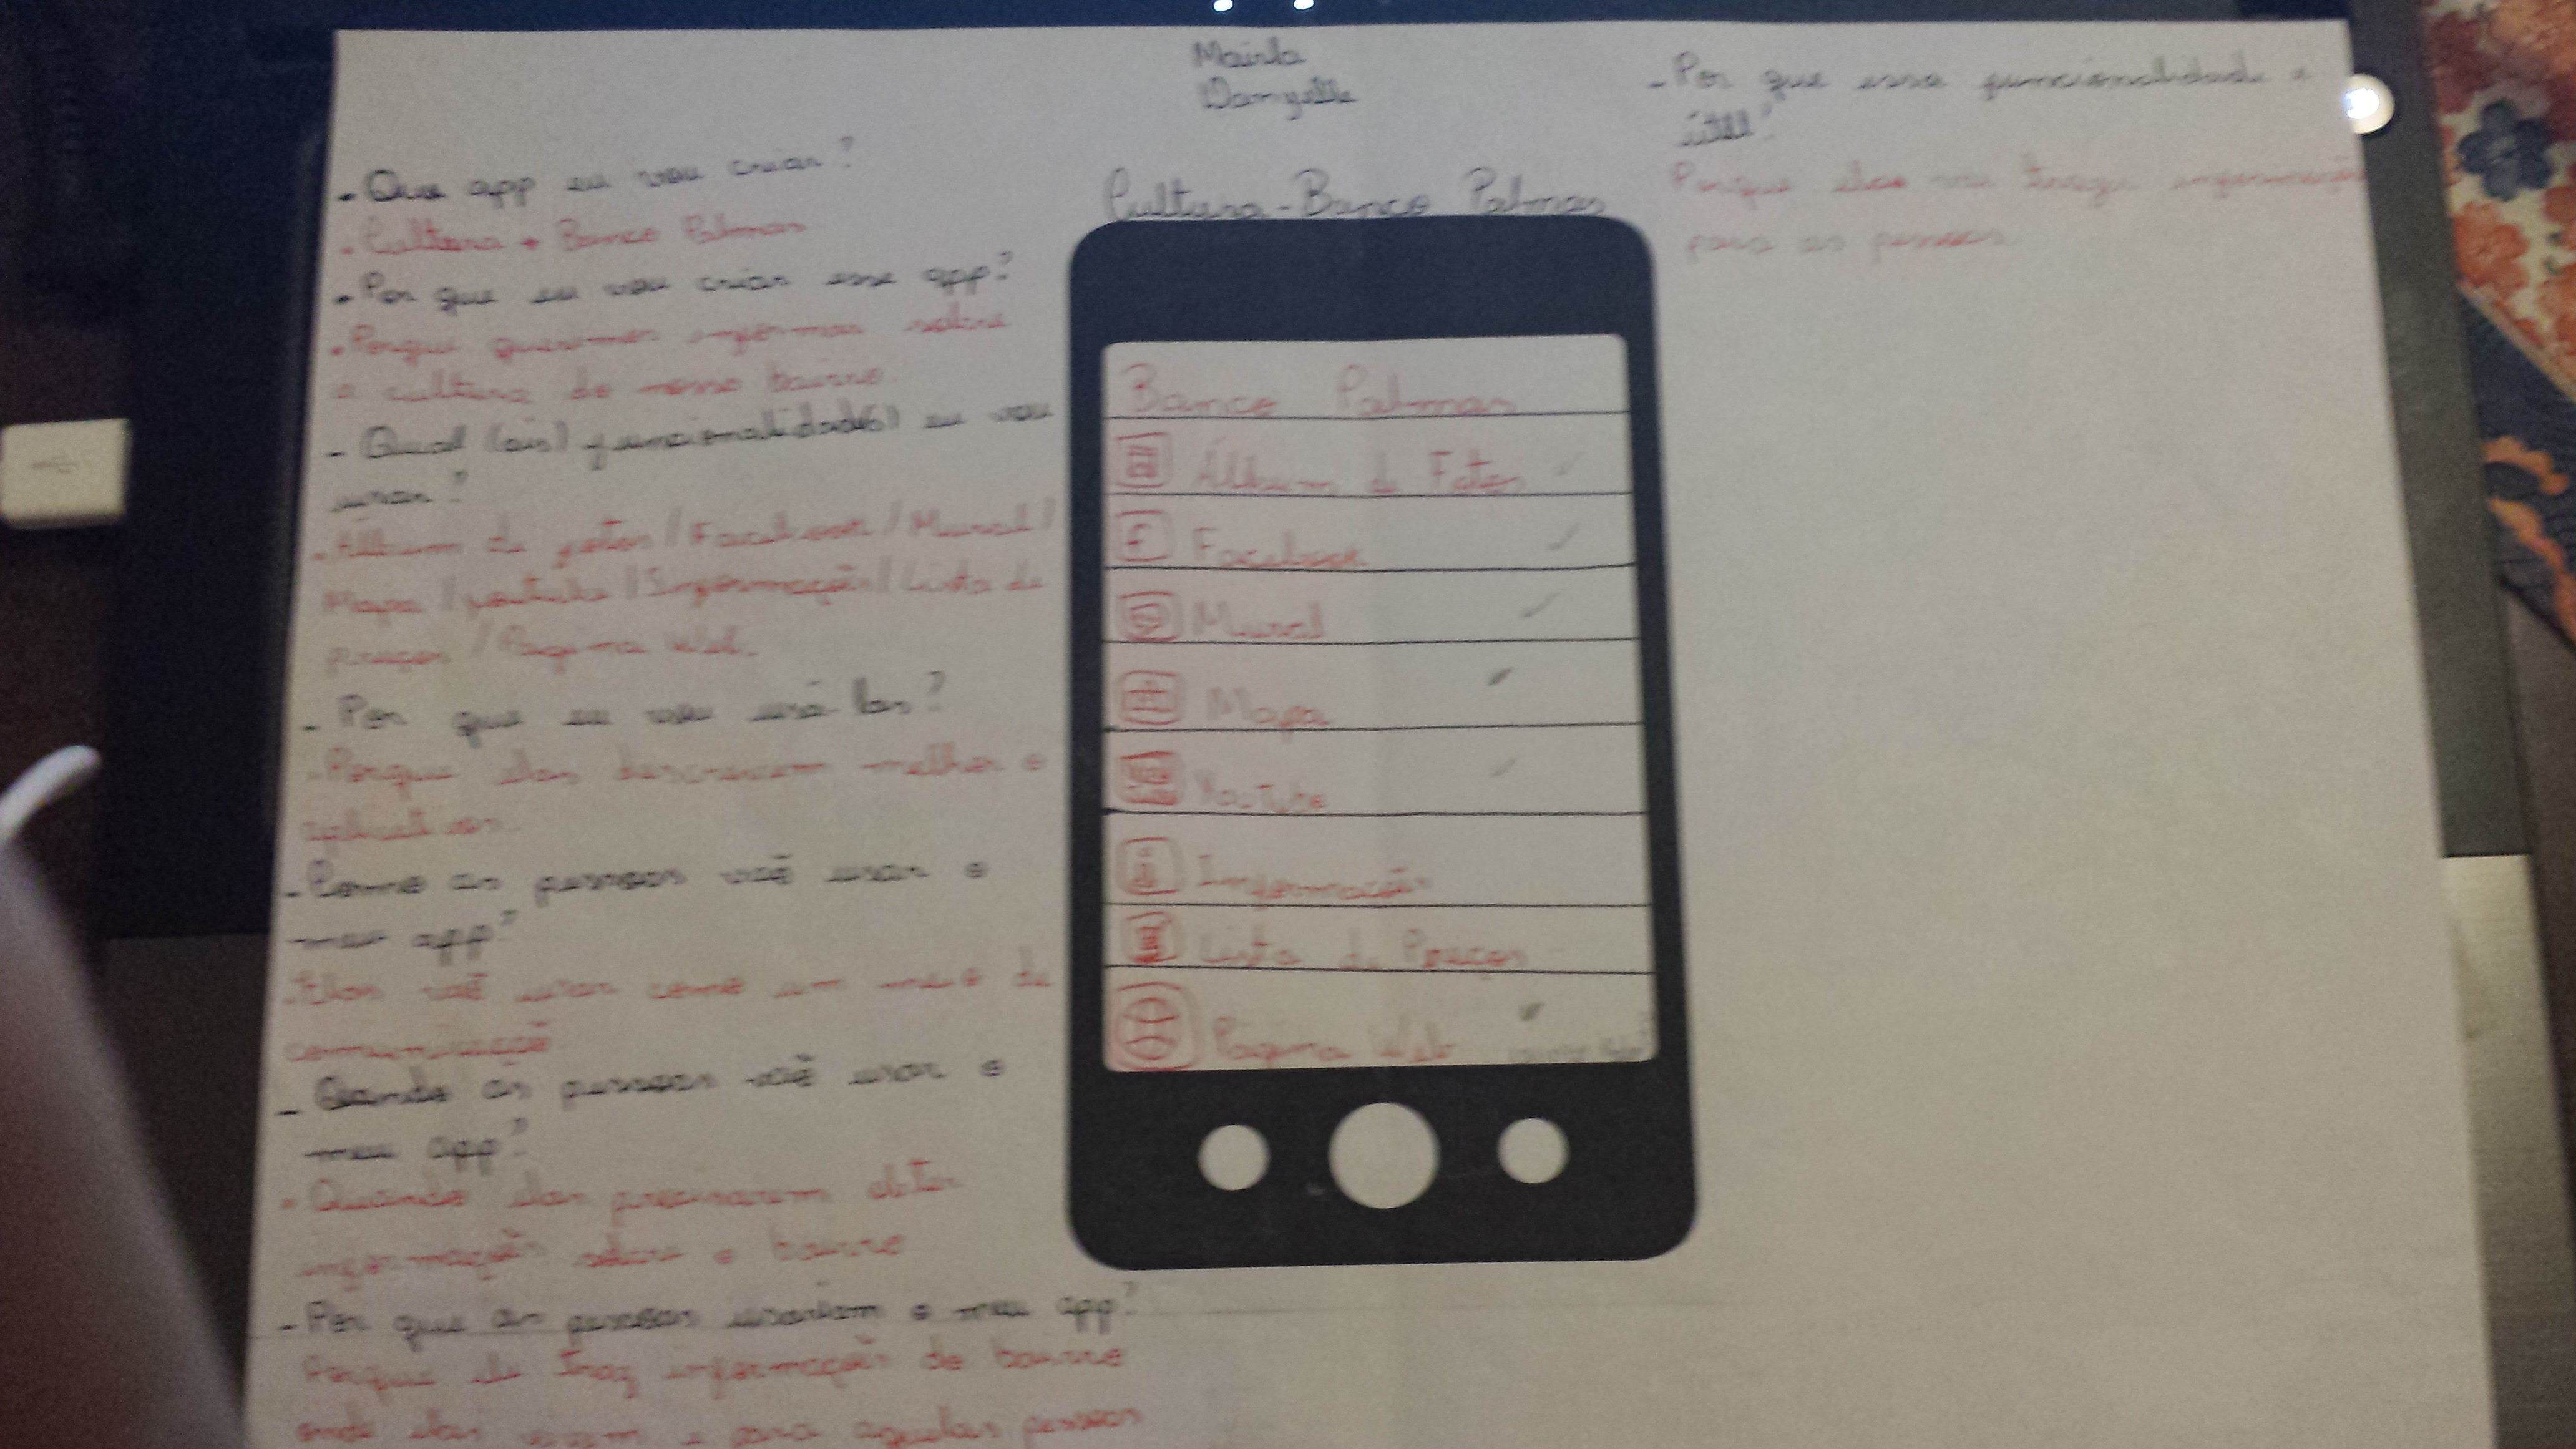 Mairla
Danyelle
- Que app eu vou criar?
- Cultura + Banco Palmas
- Por que eu vou criar esse app?
- Porque queremos informar sobre
a cultura do nosso bairro
- Qual (ais) funcionalidade(s) eu vou
usar?
- Álbum de fotos / Facebook / Mural /
Mapa / youtube / Informação / Lista de
preços / Pagina Web.
- Por que eu vou usá-las?
- Porque elas descrevem melhor o
aplicativo.
- Como as pessoas vão usar o
meu app?
- Elas vão usar como um meio de
comunicação
- Quando as pessoas vão usar o
meu app?
- Quando elas precisarem obter
informação sobre o bairro
- Por que as pessoas usariam o meu app?
Porque ele traz informações do bairro
onde elas vivem e para aquelas pessoas
Cultura - Banco Palmas
Banco Palmas
Álbum de Fotos
f Facebook
Mural
Mapa
YouTube
i Informação
Lista de Preços
Página Web
- Por que essa funcionalidade é
útil?
Porque elas vai trazer informação
para as pessoas.